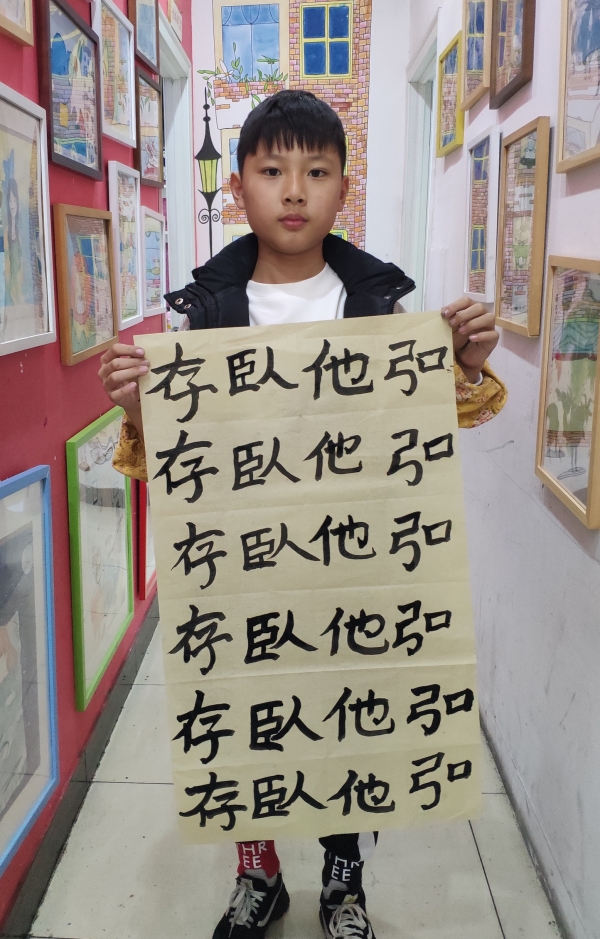 存臥他弘
存臥他弘
存臥他弘
存臥他弘
存臥他弘
存臥他弘
HR
EE
HR
EE